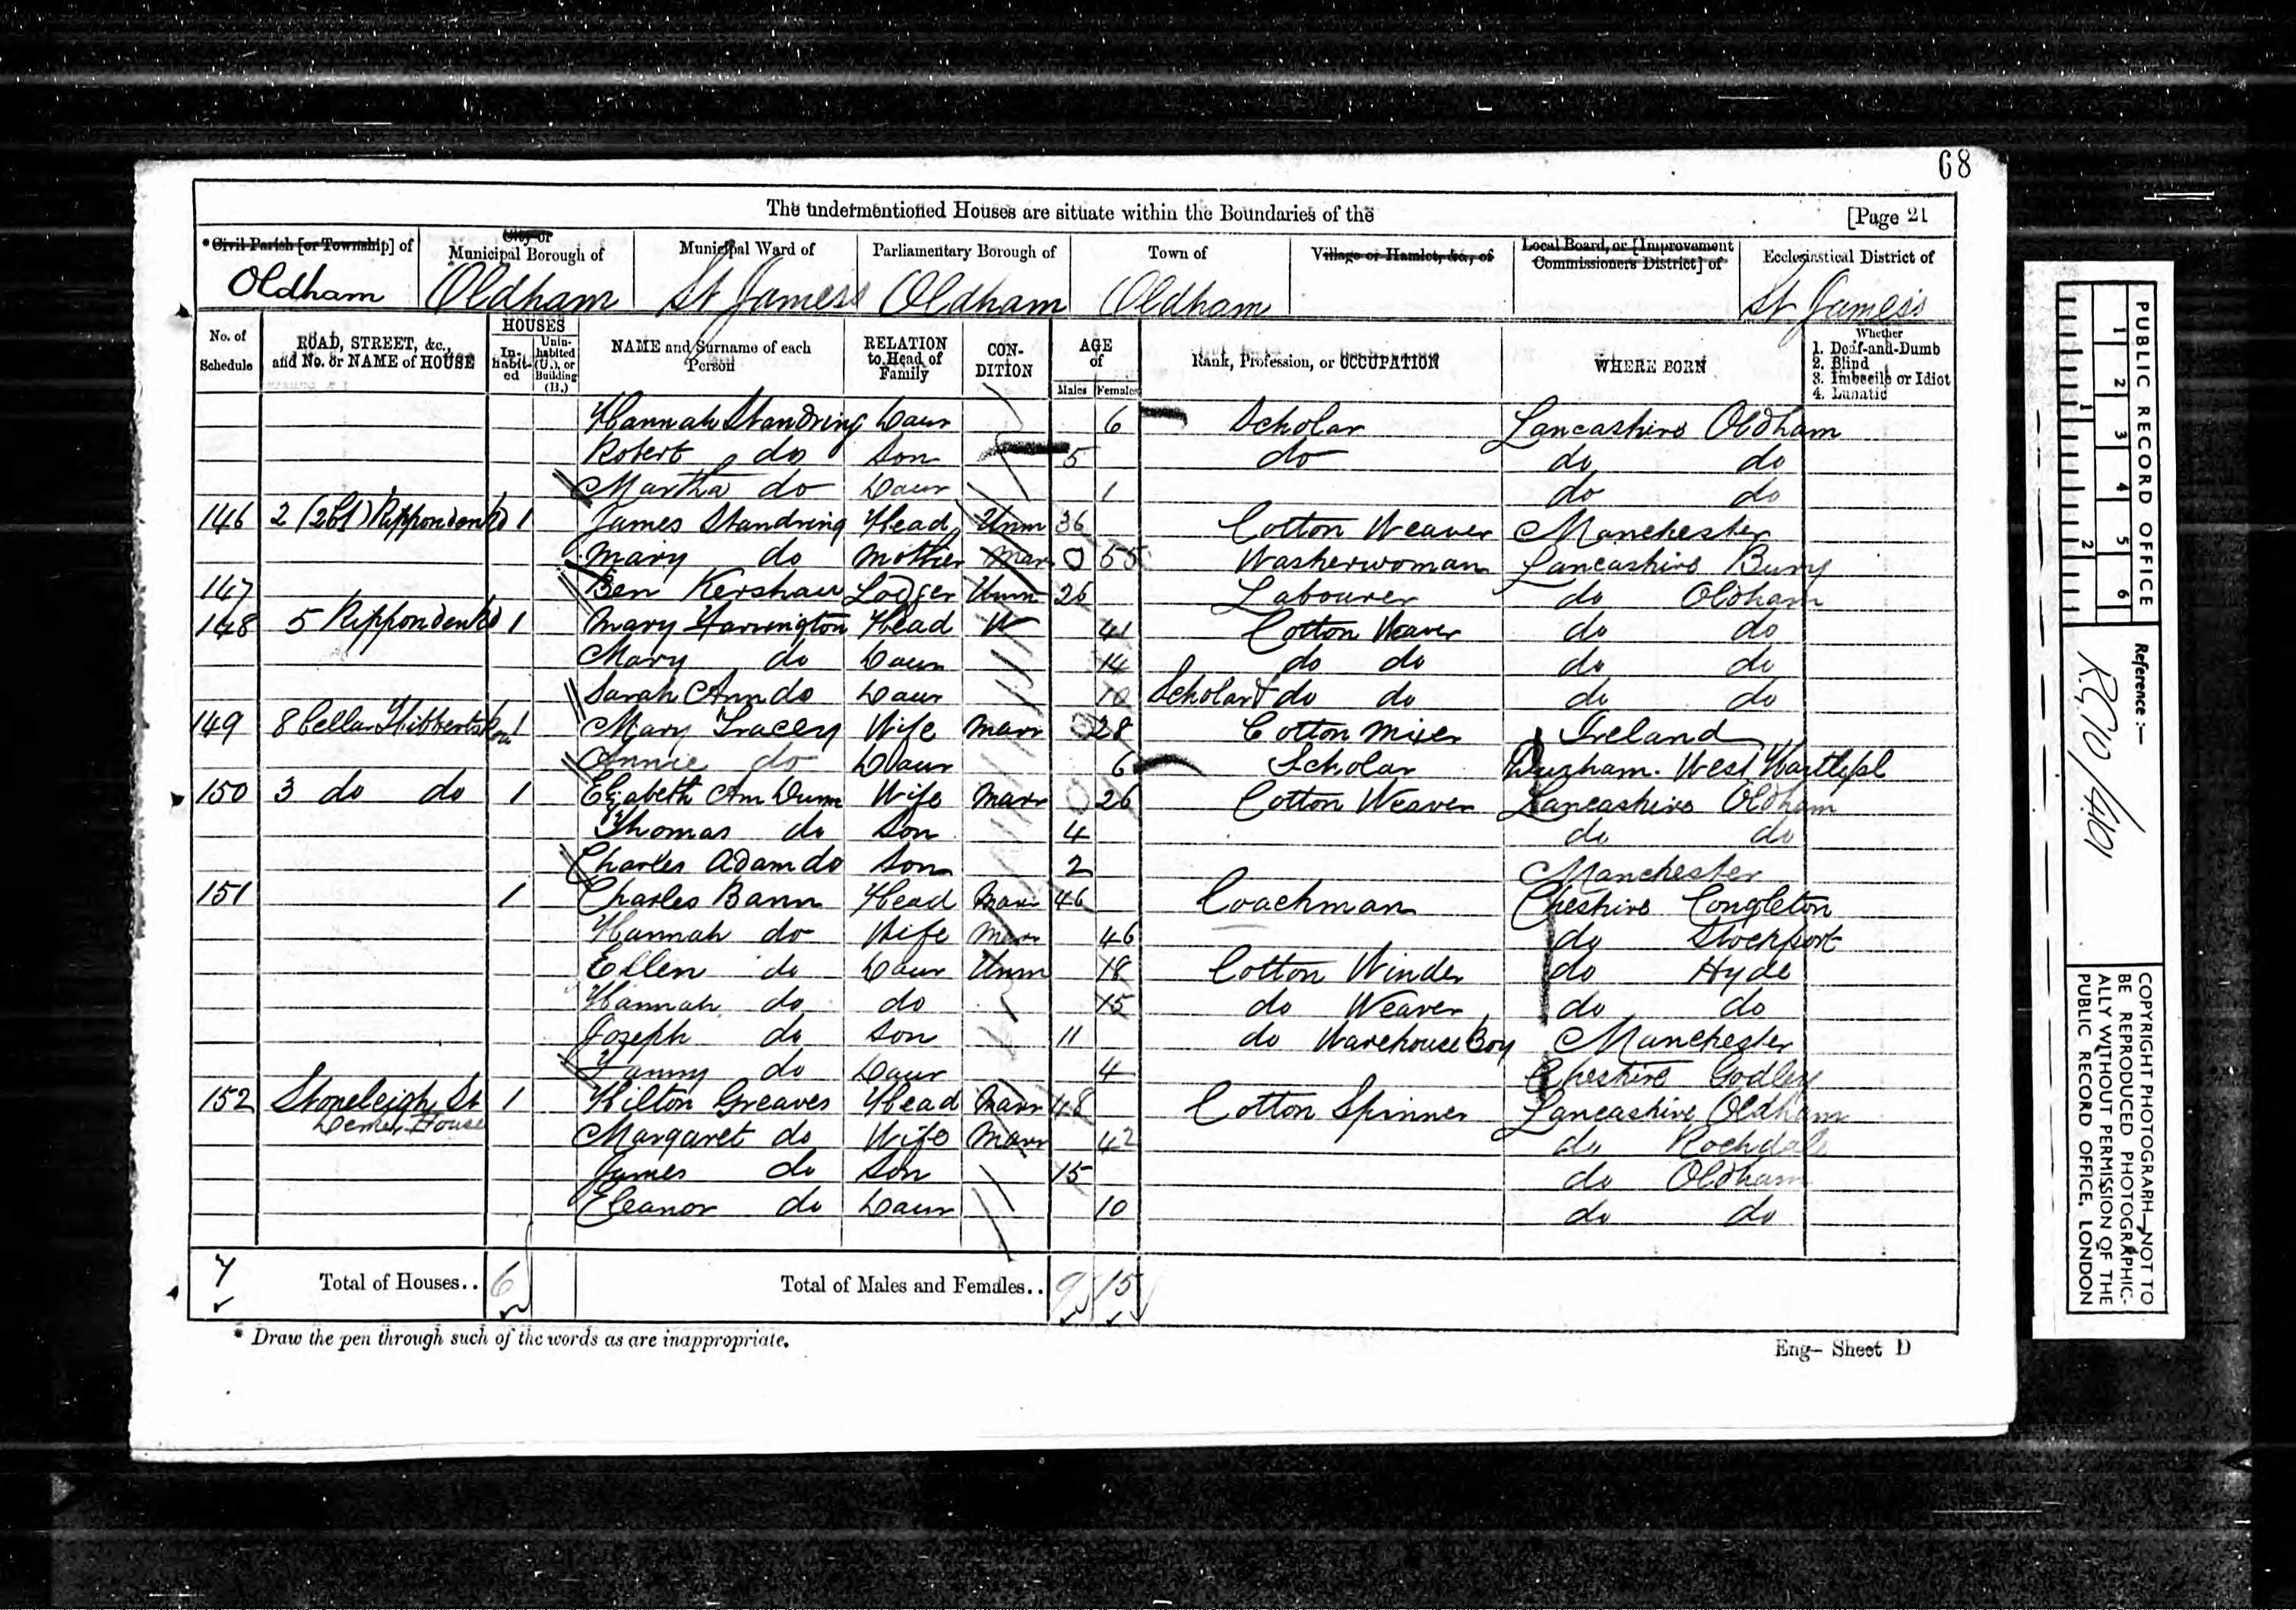 68
The undermentioned Houses are situate within the Boundaries of the [Page 21
*Civil Parish [or Township] of City or Municipal Borough of Municipal Ward of Parliamentary Borough of Town of Village or Hamlet, &c., of Local Board, or [Improvement Commissioners District] of Ecclesiastical District of
Oldham Oldham St James's Oldham Oldham St James's
No. of Schedule ROAD, STREET, &c., and No. or NAME of HOUSE HOUSES Inhabited Uninhabited (U.), or Building (B.) NAME and Surname of each Person RELATION to Head of Family CONDITION AGE of Males Females Rank, Profession, or OCCUPATION WHERE BORN Whether 1. Deaf-and-Dumb 2. Blind 3. Imbecile or Idiot 4. Lunatic
Hannah Standring Daur 6 Scholar Lancashire Oldham
Robert do Son 5 do do do
Martha do Daur 1 do do
146 2 Ripponden Rd 1 James Standring Head Unm 36 Cotton Weaver Manchester
Mary do Mother Mar 55 Washerwoman Lancashire Bury
147 Ben Kershaw Lodger Unm 26 Labourer do Oldham
148 5 Ripponden Rd 1 Mary Harrington Head W 41 Cotton Weaver do do
Mary do Daur 14 do do do do
Sarah Ann do Daur 10 Scholar & do do do do
149 8 Cellar Hibberts 1 Mary Tracey Wife Marr 28 Cotton Mixer Ireland
Annie do Daur 6 Scholar Durham. West Hartlepl
150 3 do do 1 Elizabeth Ann Dunn Wife Marr 26 Cotton Weaver Lancashire Oldham
Thomas do Son 4 do do
Charles Adam do Son 2 Manchester
151 1 Charles Bann Head Marr 46 Coachman Cheshire Congleton
Hannah do Wife Marr 46 do Stockport
Ellen do Daur Unm 18 Cotton Winder do Hyde
Hannah do do 15 do Weaver do do
Joseph do Son 11 do Warehouse Boy Manchester
Fanny do Daur 4 Cheshire Godley
152 Stoneleigh St 1 Hilton Greaves Head Marr 48 Cotton Spinner Lancashire Oldham
House Margaret do Wife Marr 42 do Rochdale
James do Son 15 do Oldham
Eleanor do Daur 10 do do
7 Total of Houses.. 6 Total of Males and Females.. 9 15
* Draw the pen through such of the words as are inappropriate.
Eng- Sheet D
PUBLIC RECORD OFFICE
1 2 3 4 5 6
1 2
Reference :—
COPYRIGHT PHOTOGRAPH—NOT TO
BE REPRODUCED PHOTOGRAPHIC-
ALLY WITHOUT PERMISSION OF THE
PUBLIC RECORD OFFICE, LONDON